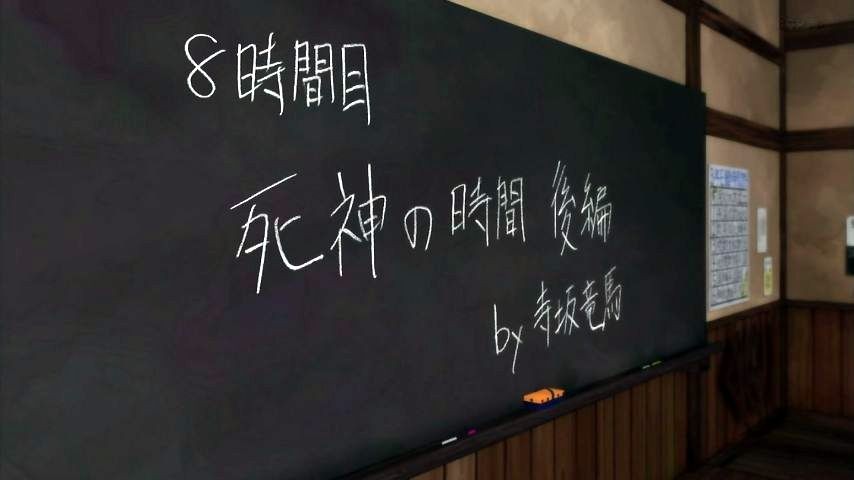 8時間目
死神の時間 後編
by 寺坂竜馬